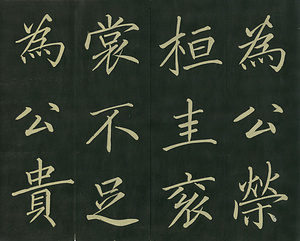 為公榮
桓圭袞
裳不足
為公貴